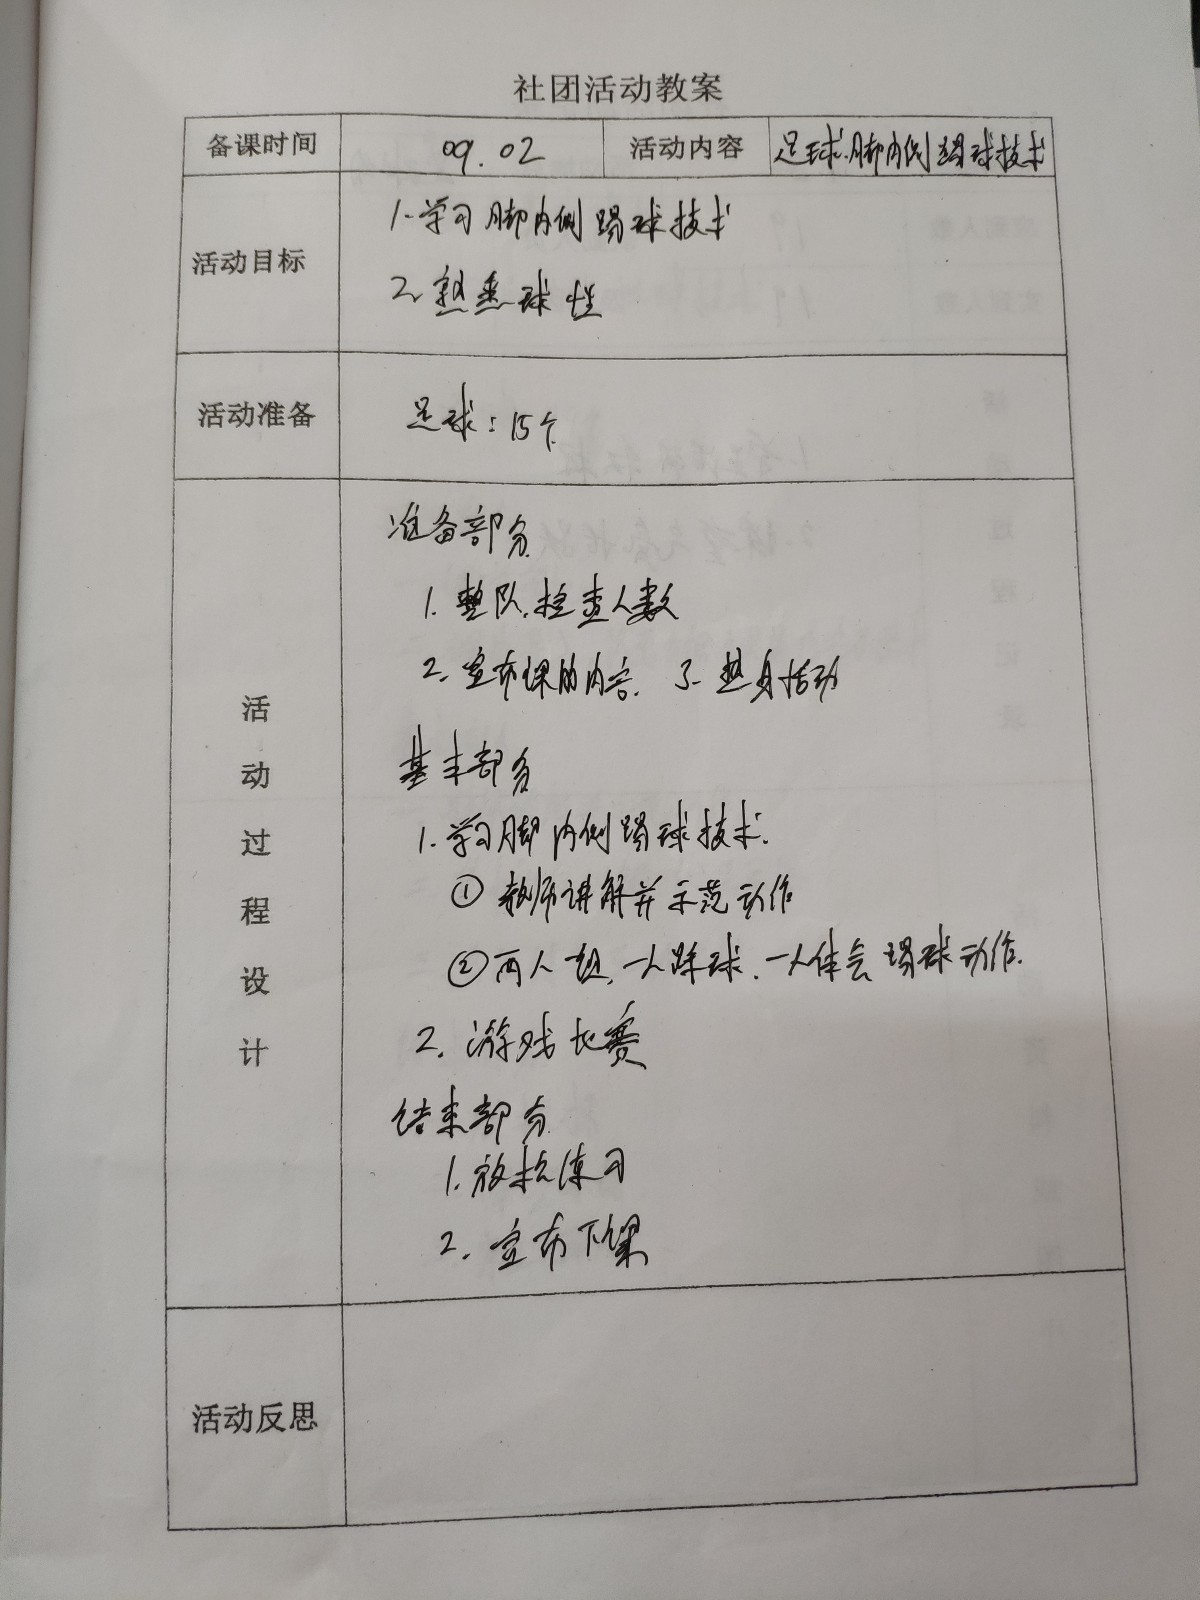 社团活动教案
备课时间 09.02 活动内容 足球:脚内侧踢球技术
活动目标
1. 学习脚内侧踢球技术
2. 熟悉球性
活动准备 足球:15个
活动过程设计
准备部分
1. 整队,检查人数
2. 宣布课的内容. 3. 热身活动
基本部分
1. 学习脚内侧踢球技术.
① 教师讲解并示范动作
② 两人一组,一人踩球.一人体会踢球动作.
2. 游戏比赛
结束部分
1. 放松练习
2. 宣布下课
活动反思